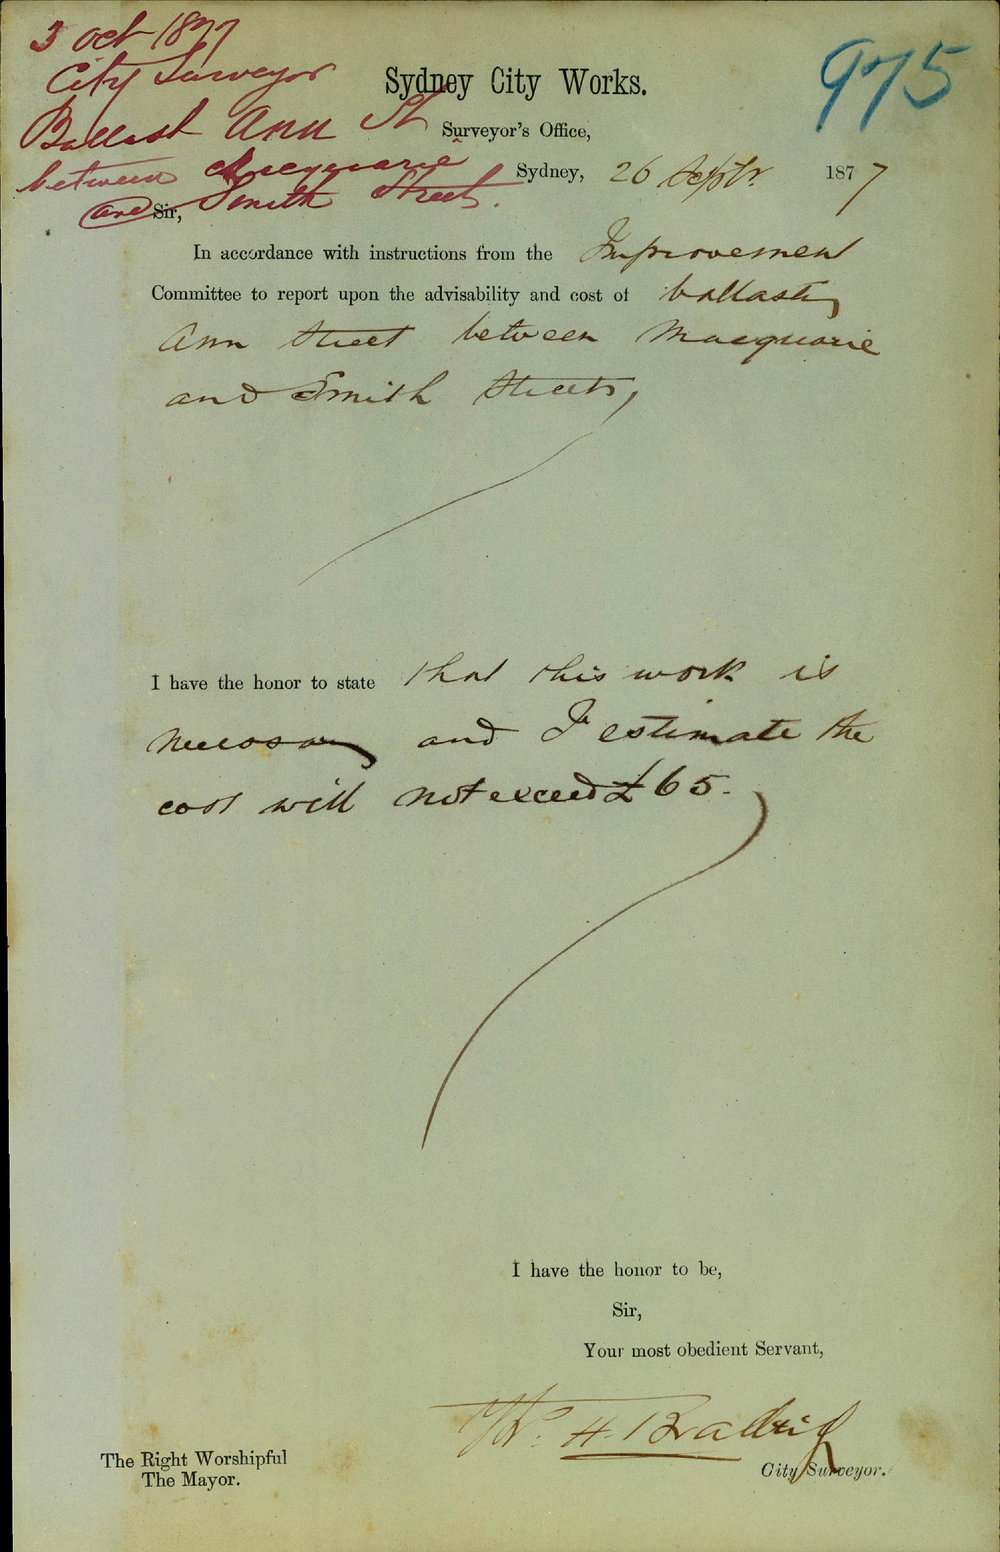 3 Oct 1877
City Surveyor
Ballast Ann St
between Macquarie
and Smith Street.
975
Sydney City Works.
Surveyor's Office,
Sydney, 26 Septr. 1877
Sir,
In accordance with instructions from the Improvement
Committee to report upon the advisability and cost of ballasting
Ann Street between Macquarie
and Smith Streets,
I have the honor to state that this work is
necessary and I estimate the
cost will not exceed £65.
I have the honor to be,
Sir,
Your most obedient Servant,
H. Bradridge
City Surveyor.
The Right Worshipful
The Mayor.